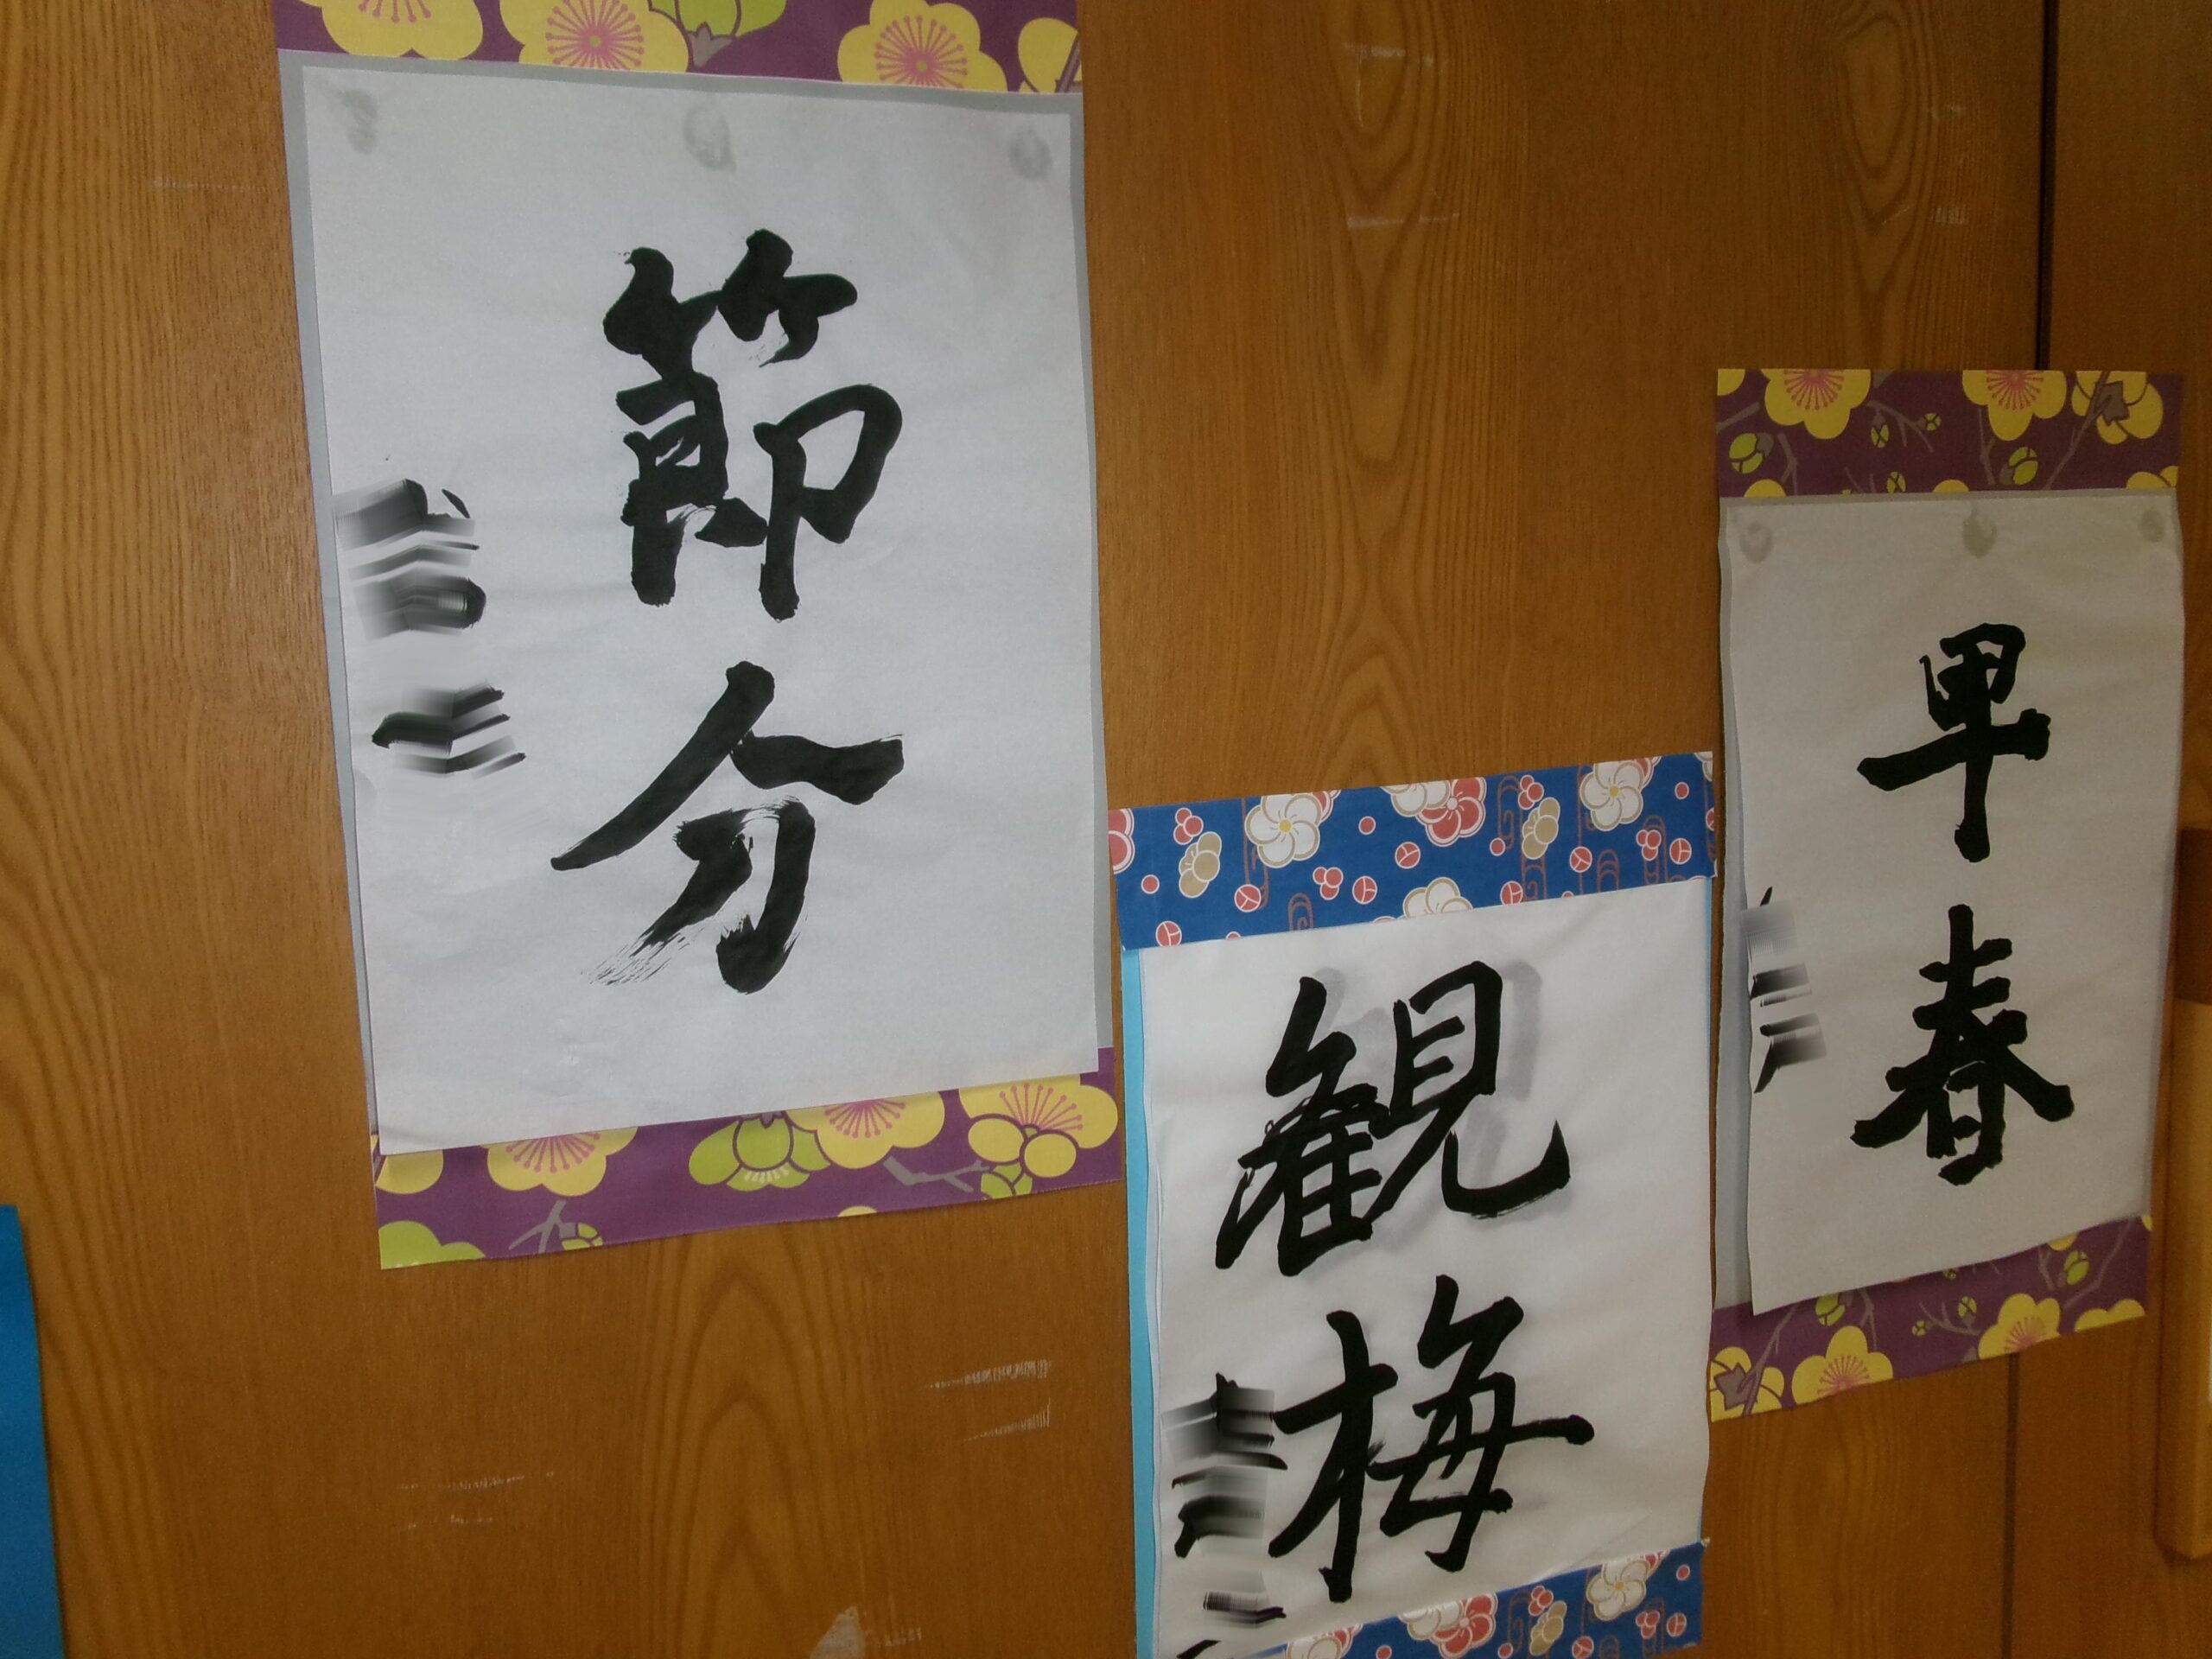 節分
観梅
早春